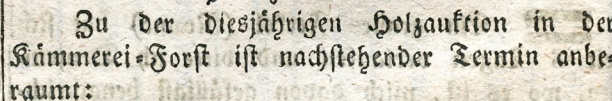 Zu der diesjährigen Holzauktion in der
Kämmerei-Forst ist nachstehender Termin anbe-
raumt: